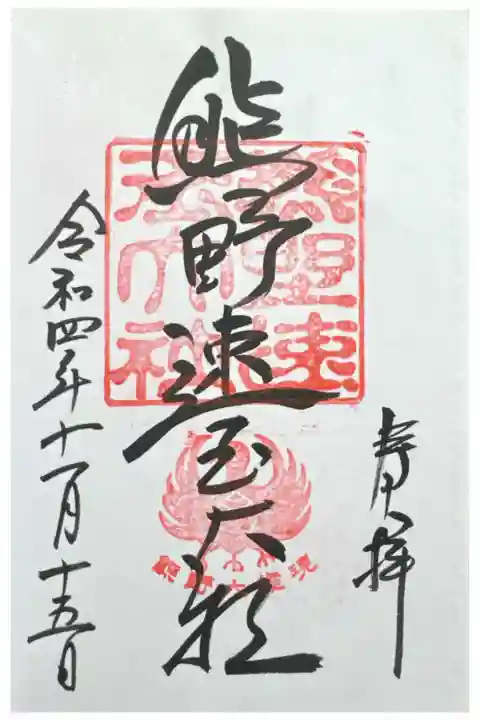 奉拝
熊野速玉大社
熊野大権現
令和四年十一月十五日